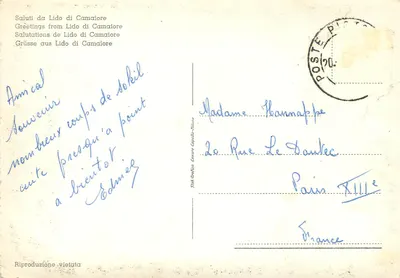 Saluti da Lido di Camaiore
Greetings from Lido di Camaiore
Salutations de Lido di Camaiore
Grüsse aus Lido di Camaiore
POSTE
20.
Amical
souvenir
nombreux coups de soleil
cuite presqu'a point
a bientot
Madame Hannappe
20 Rue Le Dantec
Paris XIIIe
France
Riproduzione vietata